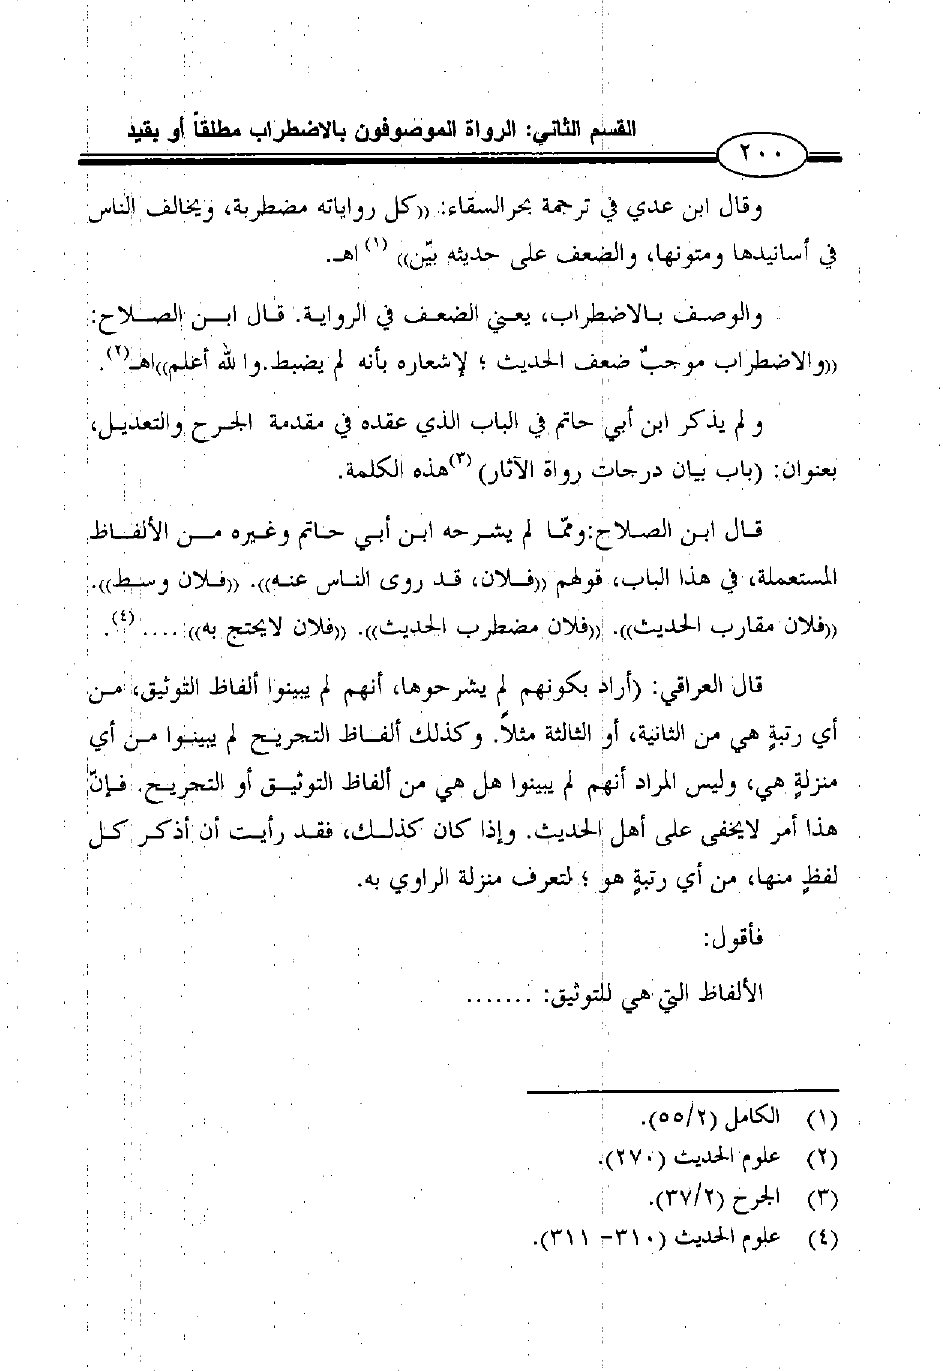 القسم الثاني: الرواة الموصوفون بالاضطراب مطلقاً أو بقيد
٢٠٠
وقال ابن عدي في ترجمة بحرالسقاء: ((كل رواياته مضطربة، ويخالف الناس
في أسانيدها ومتونها، والضعف على حديثه بيّن)) (١) اهـ.
والوصف بالاضطراب، يعني الضعف في الرواية. قال ابن الصلاح:
((والاضطراب موجبٌ ضعف الحديث ؛ لإشعاره بأنه لم يضبط.والله أعلم))اهـ(٢).
ولم يذكر ابن أبي حاتم في الباب الذي عقده في مقدمة الجرح والتعديل،
بعنوان: (باب بيان درجات رواة الآثار) (٣)هذه الكلمة.
قال ابن الصلاح:وممّا لم يشرحه ابن أبي حاتم وغيره من الألفاظ
المستعملة، في هذا الباب، قولهم ((فلان، قد روى الناس عنه)). ((فلان وسط)).
((فلان مقارب الحديث)). ((فلان مضطرب الحديث)). ((فلان لايحتج به)):.... (٤).
قال العراقي: (أراد بكونهم لم يشرحوها، أنهم لم يبينوا ألفاظ التوثيق، من
أي رتبةٍ هي من الثانية، أو الثالثة مثلاً. وكذلك ألفاظ التجريح لم يبينوا من أي
منزلةٍ هي، وليس المراد أنهم لم يبينوا هل هي من ألفاظ التوثيق أو التجريح. فإنّ
هذا أمر لايخفى على أهل الحديث. وإذا كان كذلك، فقد رأيت أن أذكر كل
لفظٍ منها، من أي رتبةٍ هو ؛ لتعرف منزلة الراوي به.
فأقول:
الألفاظ التي هي للتوثيق: .......
(١) الكامل (٥٥/٢).
(٢) علوم الحديث (٢٧٠).
(٣) الجرح (٣٧/٢).
(٤) علوم الحديث (٣١٠- ٣١١).